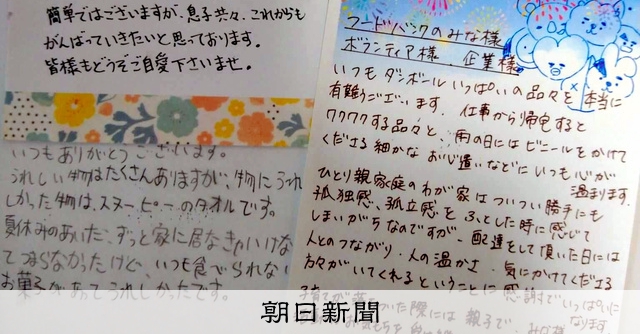 簡単ではございますが、息子共々、これからも
がんばっていきたいと思っております。
皆様もどうぞご自愛下さいませ。
いつもありがとうございます。
うれしい物はたくさんありますが、物にうれ
しかった物は、スヌーピーのタオルです。
夏休みのあいだ、ずっと家に居なきゃいけなく
てつまらなかったけど、いつも食べられない
お菓子があってうれしかったです。
フードバンクのみな様
ボランティア様、企業様
いつもダンボールいっぱいの品々を本当に
有難うございます。仕事から帰宅すると
ワクワクする品々と、雨の日にはビニールをかけて
くださる細かなお心遣いなどにいつも心が
温まります。
ひとり親家庭のわが家はついつい勝手にも
孤独感、孤立感をふとした時に感じて
しまいがちなのですが、配達をして頂いた日には
人とのつながり・人の温かさ・気にかけてくださる
方々がいてくれるということに感謝でいっぱいに
なります
朝日新聞